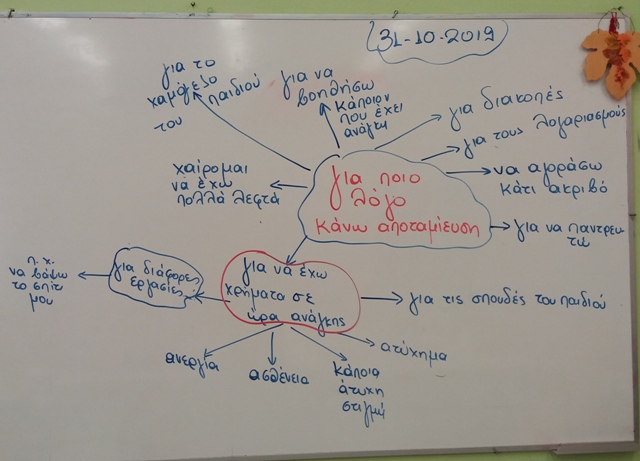 31-10-2019
για το
χαμόγελο
του παιδιού
για να
βοηθήσω
κάποιον
που έχει
ανάγκη
για διακοπές
για τους λογαριασμούς
χαίρομαι
να έχω
πολλά λεφτά
για ποιο
λόγο
κάνω αποταμίευση
να αγοράσω
κάτι ακριβό
για να παντρευ-
τώ
π.χ.
να βάψω
το σπίτι
μου
για διάφορες
εργασίες
για να έχω
χρήματα σε
ώρα ανάγκης
για τις σπουδές του παιδιού
ανεργία
ασθένεια
κάποια
άτυχη
στιγμή
ατύχημα